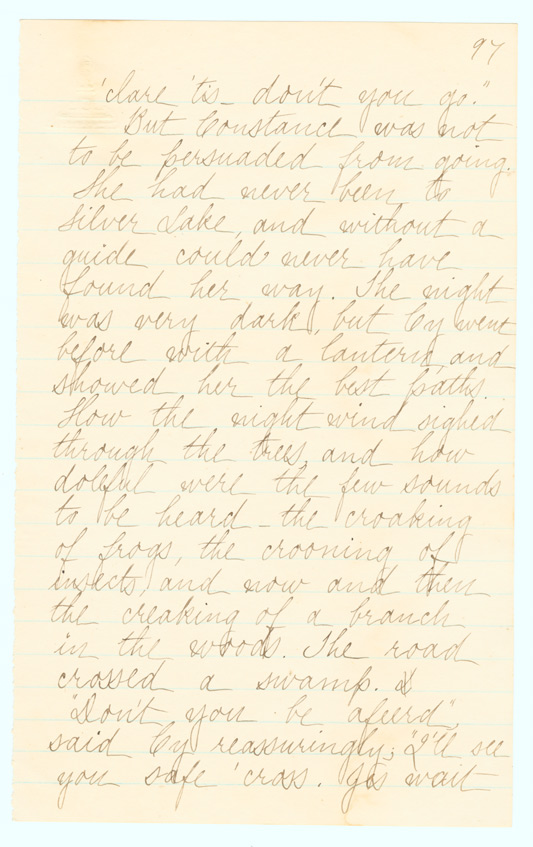 97
'clare 'tis - don't you go."
But Constance was not
to be persuaded from going.
She had never been to
Silver Lake, and without a
guide could never have
found her way. The night
was very dark, but Cy went
before with a lantern, and
showed her the best paths.
How the night wind sighed
through the trees, and how
doleful were the few sounds
to be heard - the croaking
of frogs, the crooning of
insects, and now and then
the creaking of a branch
in the woods. The road
crossed a swamp.
"Don't you be afeerd",
said Cy reassuringly; "I'll see
you safe 'cross. Jis wait